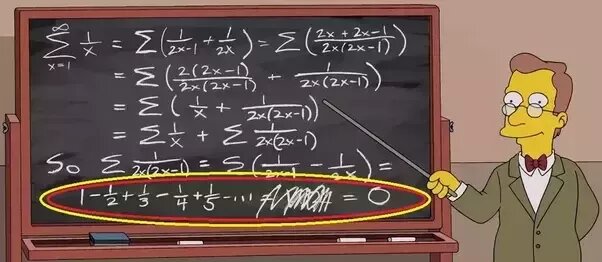 ∞∑x=1 1/x = ∑(1/(2x-1) + 1/2x) = ∑((2x+2x-1)/(2x(2x-1)))
= ∑(2(2x-1)/(2x(2x-1)) + 1/(2x(2x-1)))
= ∑(1/x + 1/(2x(2x-1)))
= ∑ 1/x + ∑ 1/(2x(2x-1))
So ∑ 1/(2x(2x-1)) = ∑(1/(2x-1) - 1/2x) =
1 - 1/2 + 1/3 - 1/4 + 1/5 - ... = 0